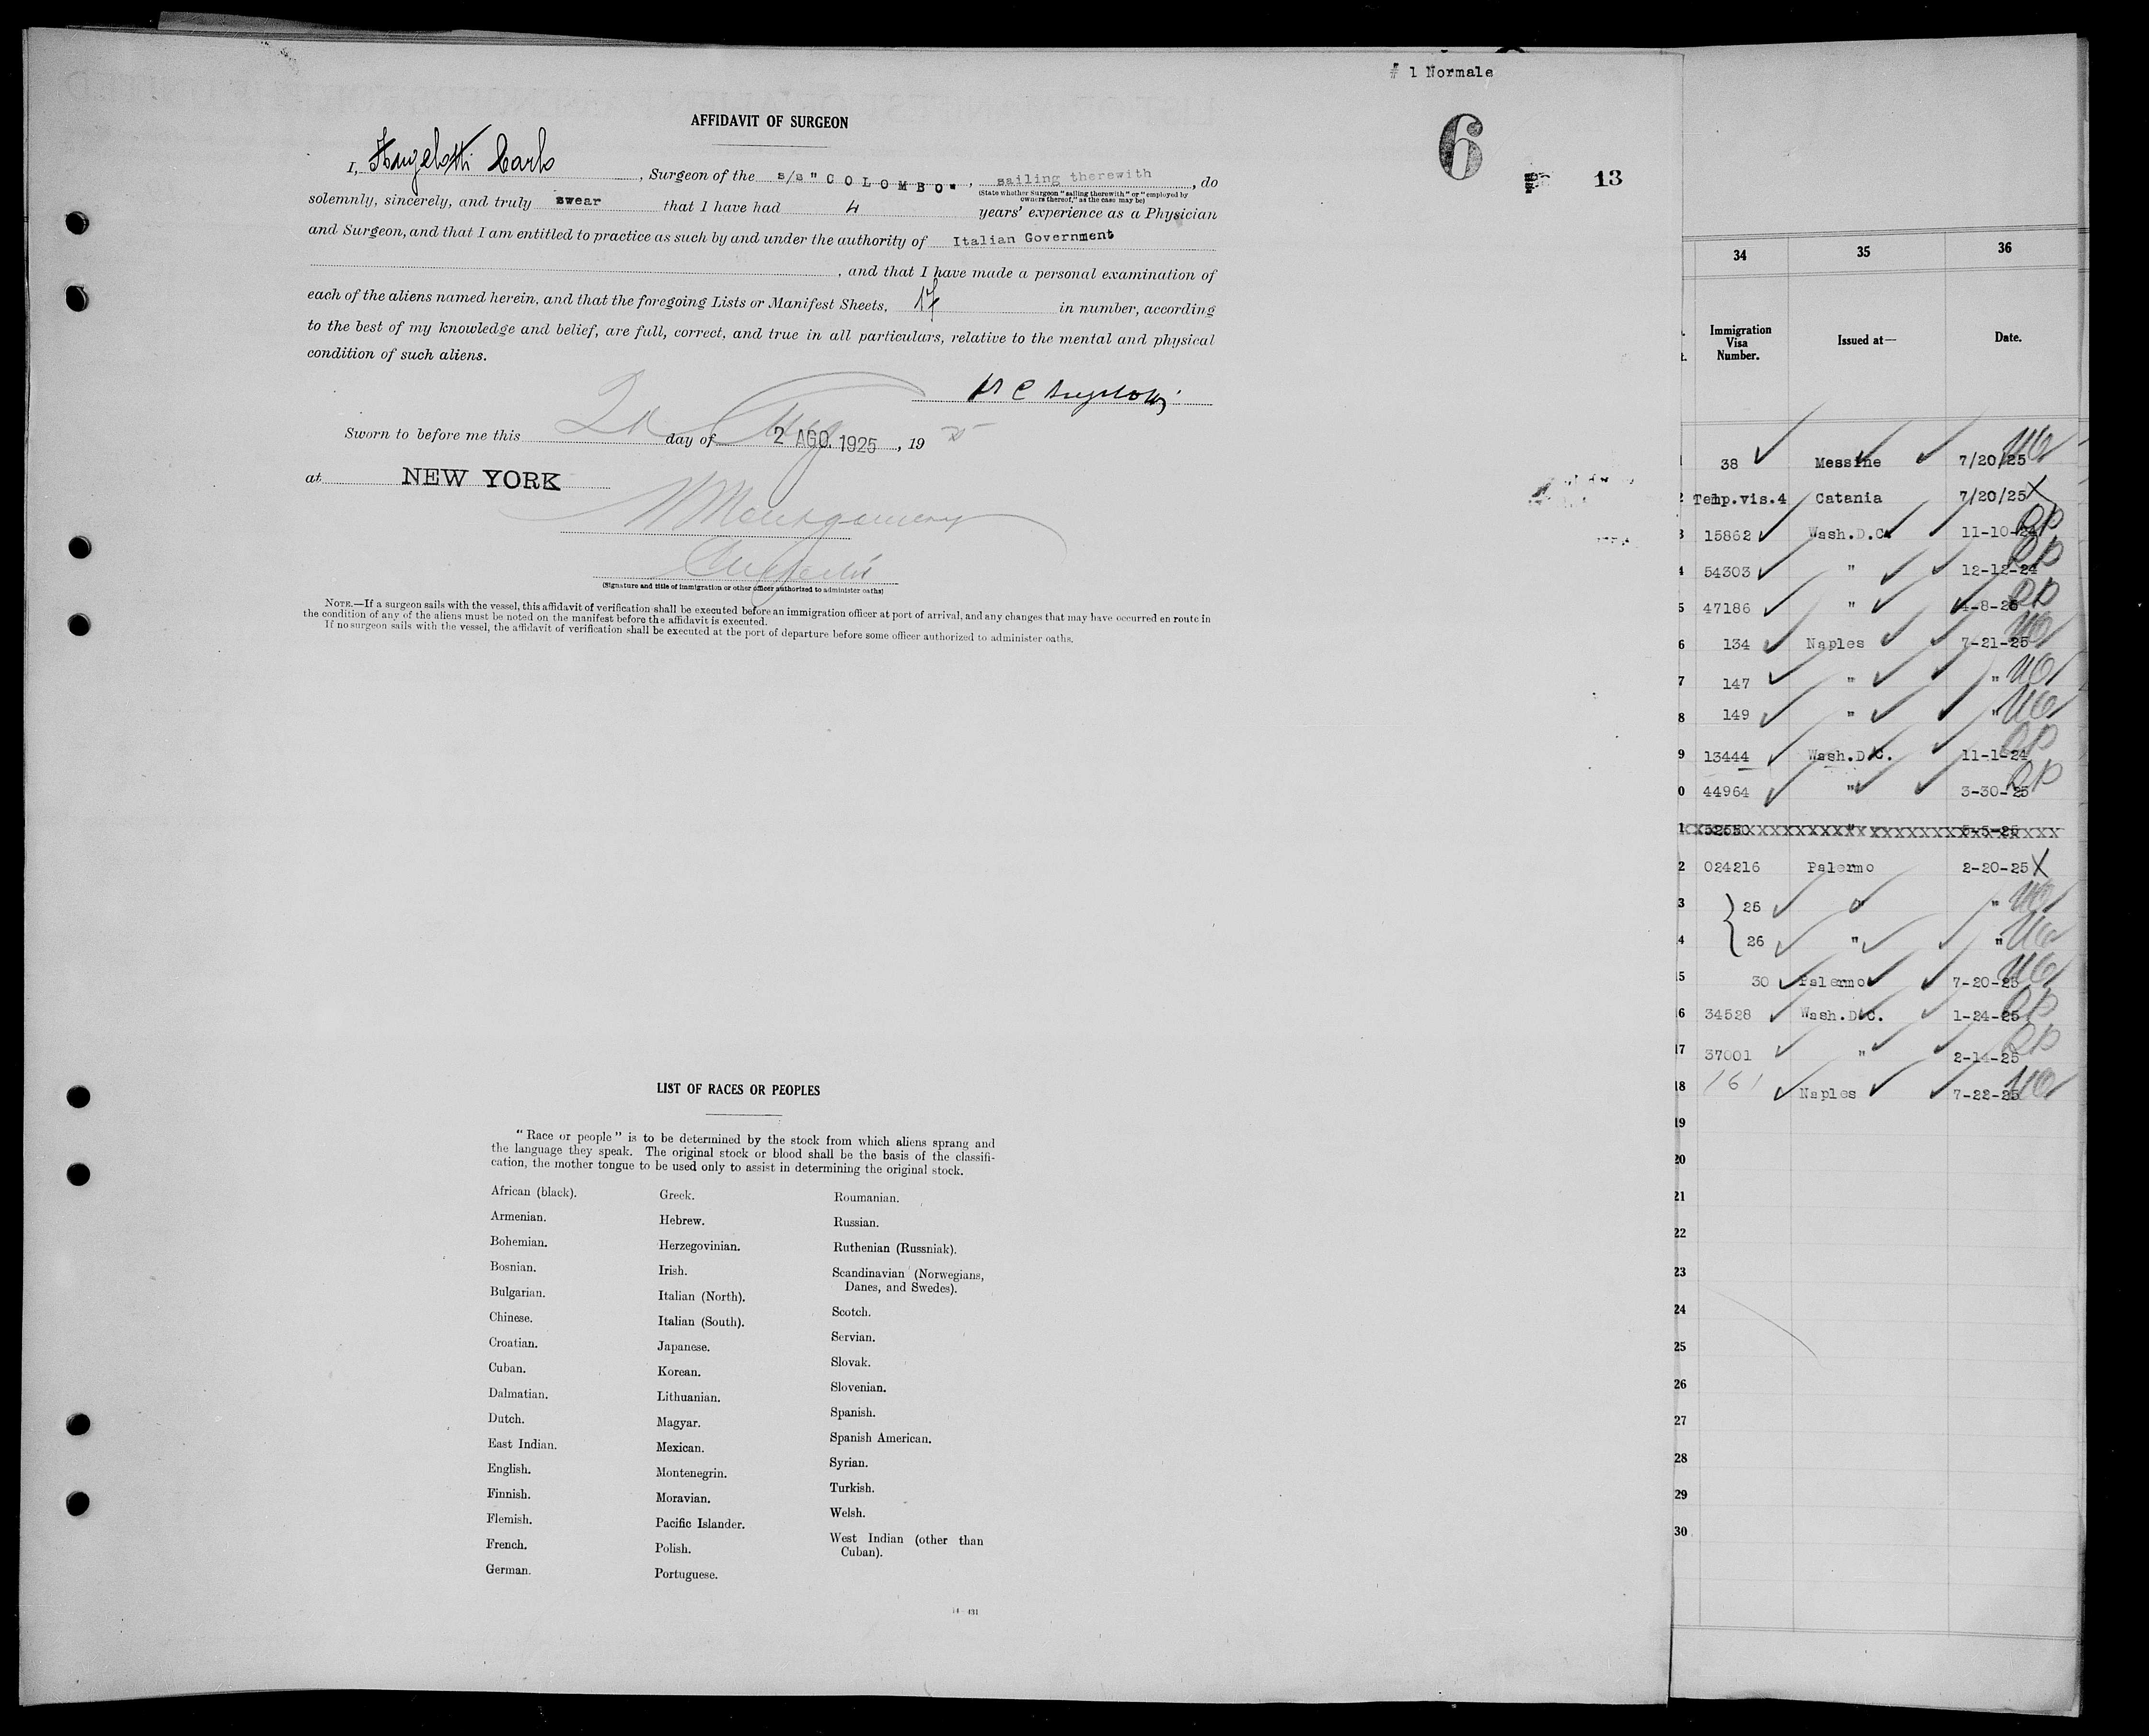 # 1 Normale
6
13
AFFIDAVIT OF SURGEON
I, Angelotti Carlo, Surgeon of the s/s "COLOMBO", sailing therewith, do
(State whether Surgeon "sailing therewith" or "employed by
owners thereof," as the case may be)
solemnly, sincerely, and truly swear that I have had 4 years' experience as a Physician
and Surgeon, and that I am entitled to practice as such by and under the authority of Italian Government
, and that I have made a personal examination of
each of the aliens named herein, and that the foregoing Lists or Manifest Sheets, 17 in number, according
to the best of my knowledge and belief, are full, correct, and true in all particulars, relative to the mental and physical
condition of such aliens.
Sworn to before me this 2d day of Aug 2 AGO. 1925, 19 25
at NEW YORK
Montgomery
(Signature and title of immigration or other officer authorized to administer oaths)
NOTE.—If a surgeon sails with the vessel, this affidavit of verification shall be executed before an immigration officer at port of arrival, and any changes that may have occurred en route in
the condition of any of the aliens must be noted on the manifest before the affidavit is executed.
If no surgeon sails with the vessel, the affidavit of verification shall be executed at the port of departure before some officer authorized to administer oaths.
LIST OF RACES OR PEOPLES
"Race or people" is to be determined by the stock from which aliens sprang and
the language they speak. The original stock or blood shall be the basis of the classifi-
cation, the mother tongue to be used only to assist in determining the original stock.
African (black).
Armenian.
Bohemian.
Bosnian.
Bulgarian.
Chinese.
Croatian.
Cuban.
Dalmatian.
Dutch.
East Indian.
English.
Finnish.
Flemish.
French.
German.
Greek.
Hebrew.
Herzegovinian.
Irish.
Italian (North).
Italian (South).
Japanese.
Korean.
Lithuanian.
Magyar.
Mexican.
Montenegrin.
Moravian.
Pacific Islander.
Polish.
Portuguese.
Roumanian.
Russian.
Ruthenian (Russniak).
Scandinavian (Norwegians,
Danes, and Swedes).
Scotch.
Servian.
Slovak.
Slovenian.
Spanish.
Spanish American.
Syrian.
Turkish.
Welsh.
West Indian (other than
Cuban).
14 431
34 35 36
Immigration
Visa
Number.
Issued at—
Date.
1 38 Messine 7/20/25
2 Temp.vis.4 Catania 7/20/25 X
3 15862 Wash.D.C. 11-10-24
4 54303 " 12-12-24
5 47186 " 4-8-25
6 134 Naples 7-21-25
7 147 " "
8 149 " "
9 13444 Wash.D.C. 11-1-24
0 44964 " 3-30-25
1 52550 " 5-5-25
2 024216 Palermo 2-20-25 X
3 25 " "
4 26 " "
5 30 Palermo 7-20-25
6 34528 Wash.D.C. 1-24-25
17 37001 " 2-14-25
18 161 Naples 7-22-25
19
20
21
22
23
24
25
26
27
28
29
30